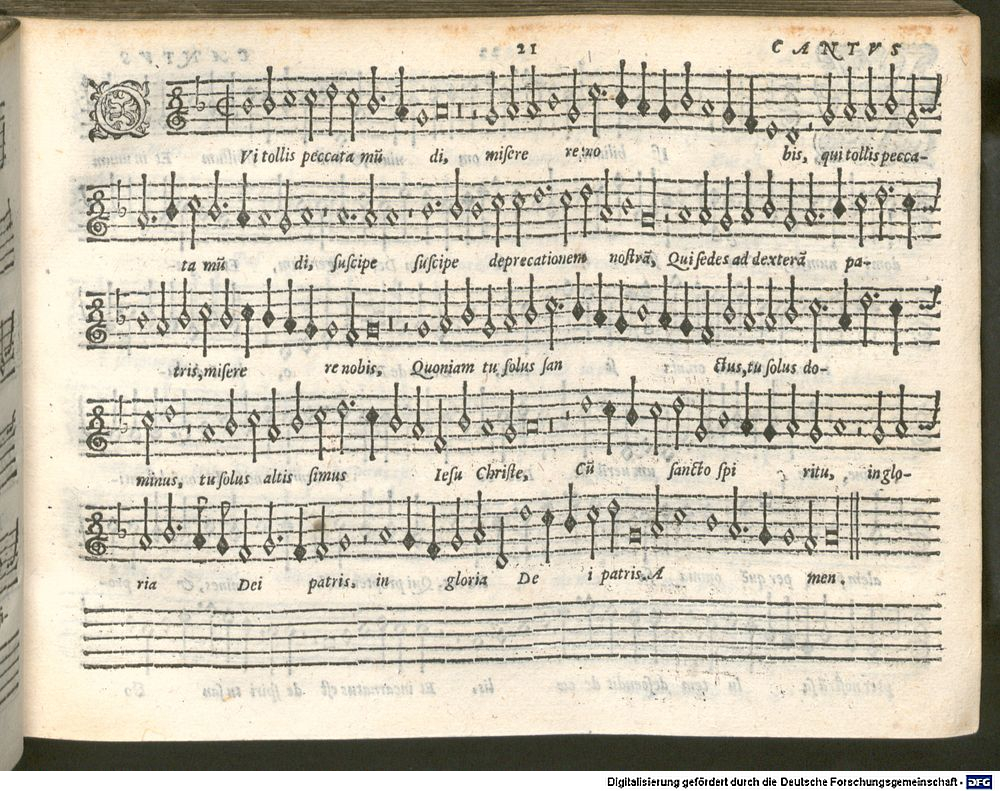 21
CANTVS
QVi tollis peccata mũ di, miſere re no bis, qui tollis pecca-
ta mũ di, ſuſcipe ſuſcipe deprecationem noſtrã, Qui ſedes ad dexterã pa-
tris, miſere re nobis, Quoniam tu ſolus ſan ctus, tu ſolus do-
minus, tu ſolus altis ſimus Ieſu Chriſte, Cũ ſancto ſpi ritu, in glo-
ria Dei patris. in gloria De i patris. A men.
Digitalisierung gefördert durch die Deutsche Forschungsgemeinschaft - DFG